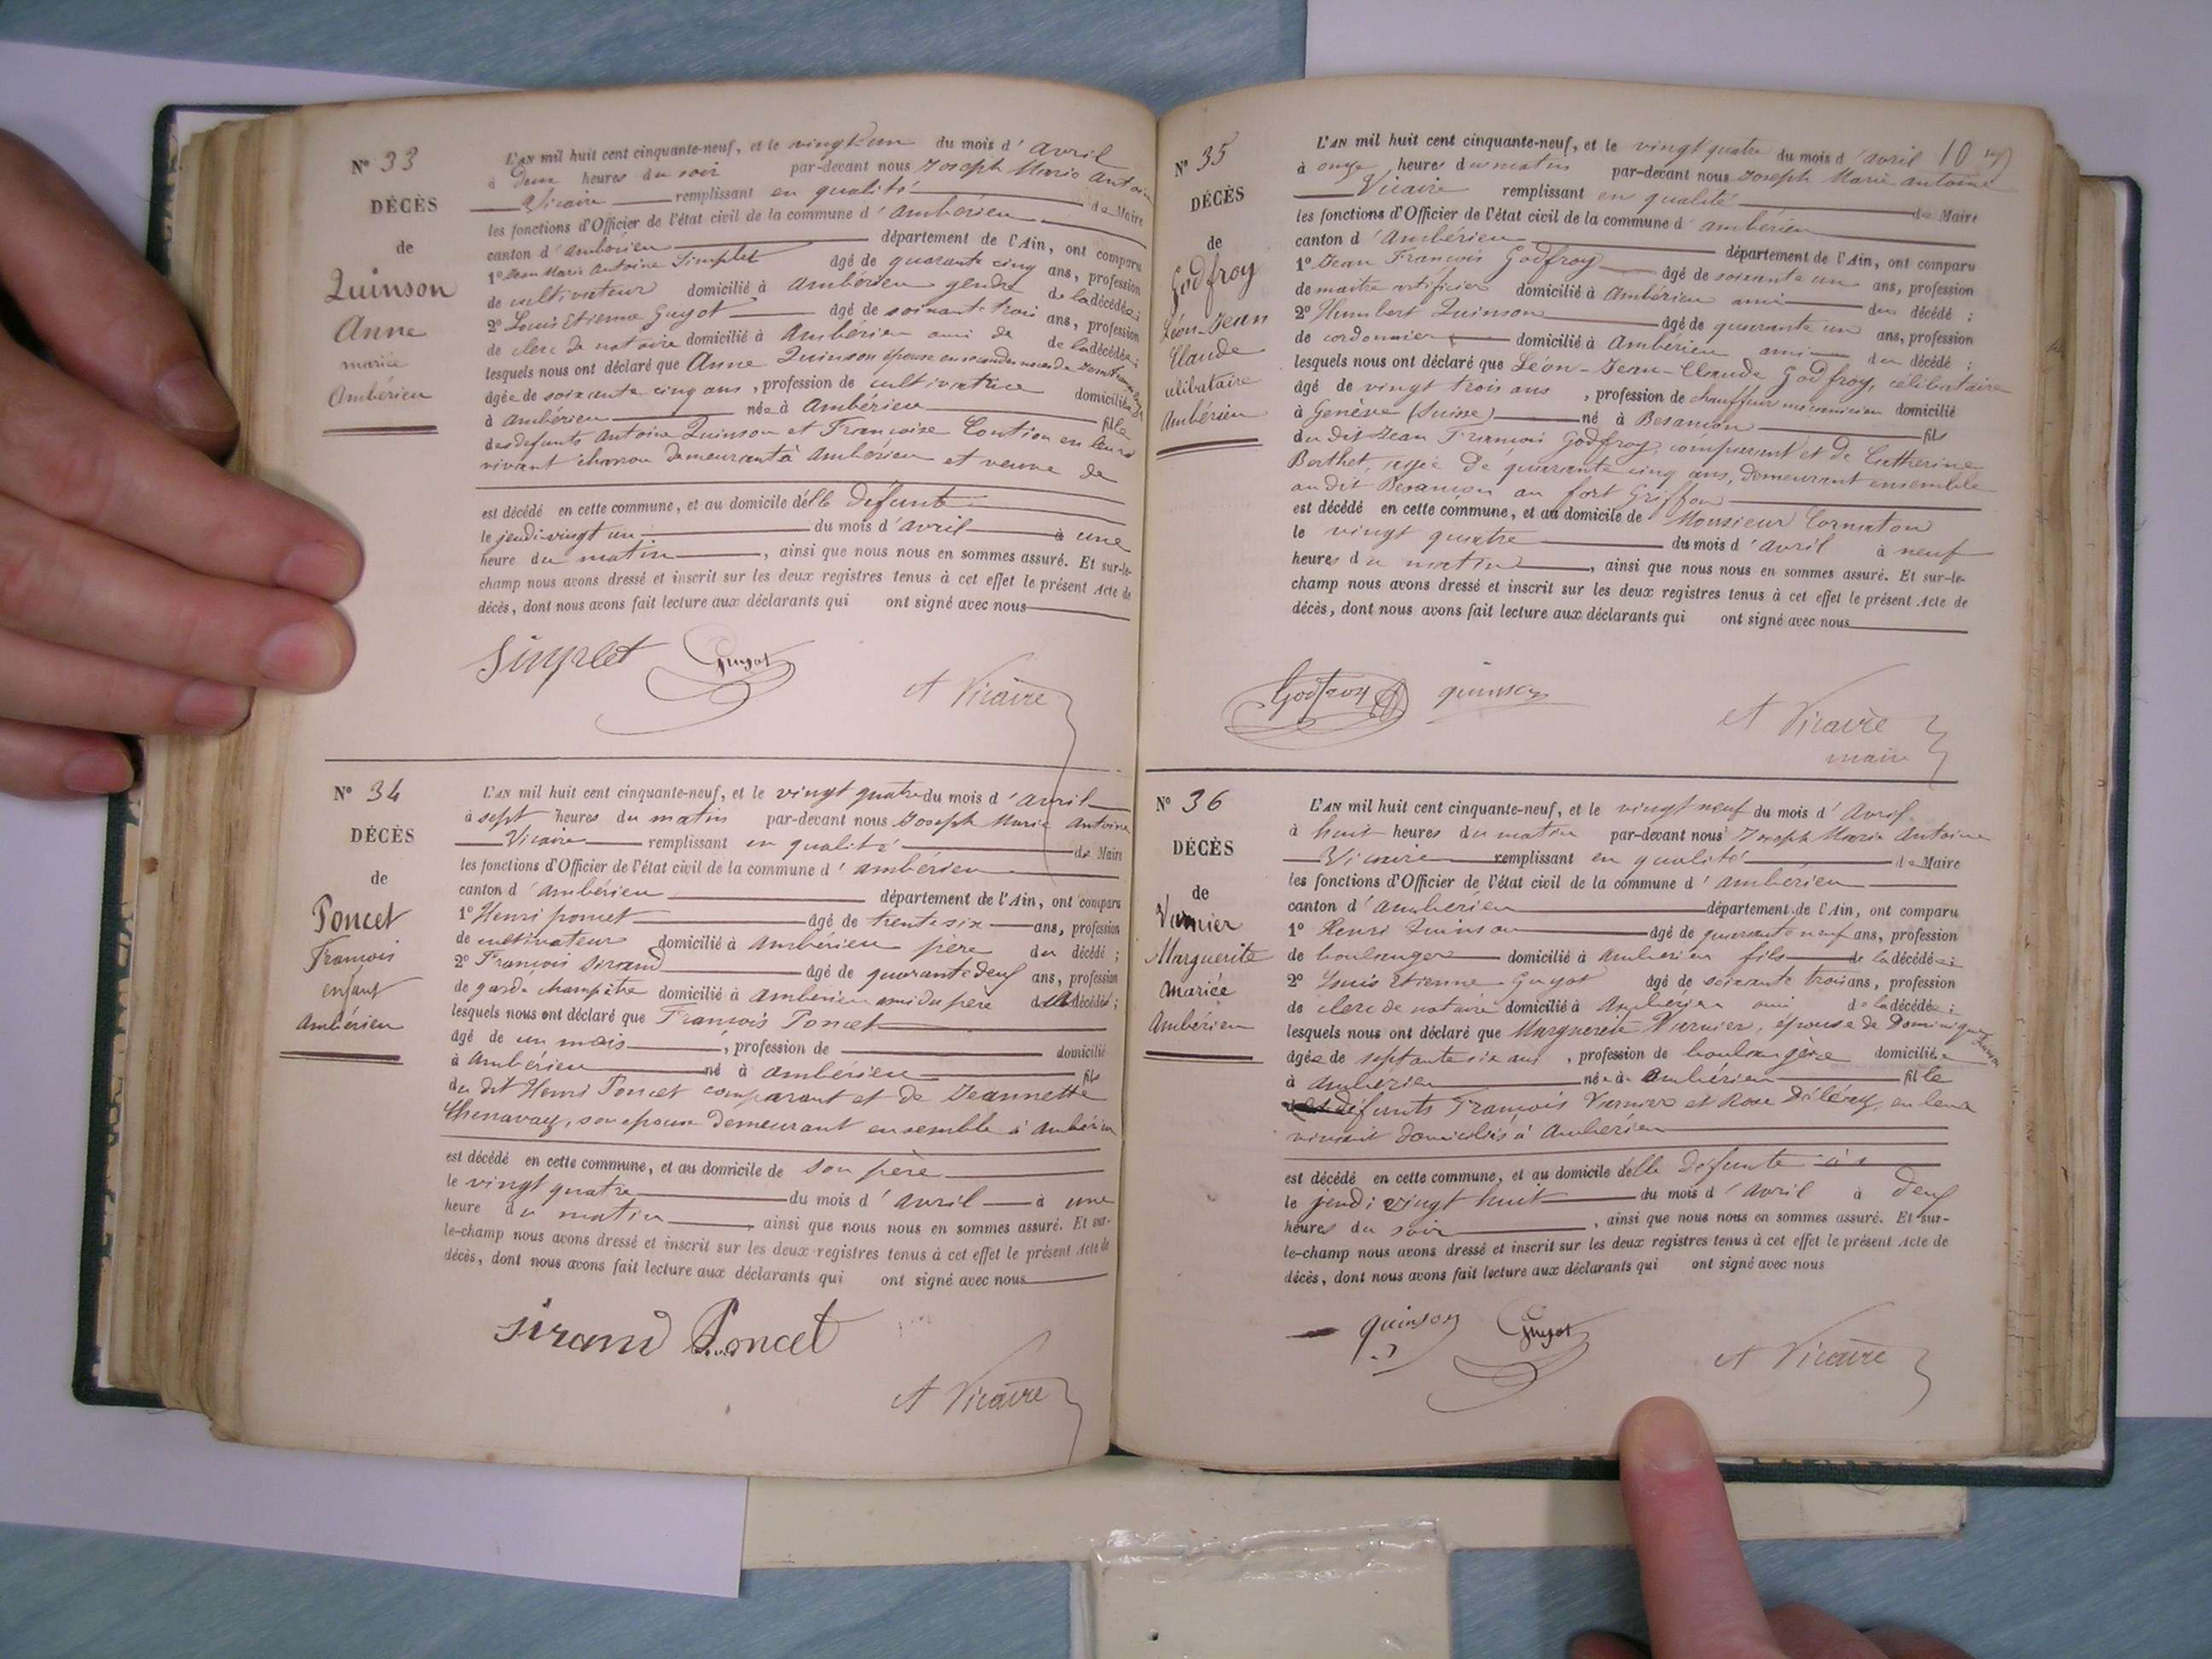 N° 33
DÉCÈS
de
Quinson
Anne
mariée
Ambérieu
L'AN mil huit cent cinquante-neuf, et le vingt un du mois d'avril
à deux heures du soir par-devant nous Joseph Marie Antoine
Vicaire remplissant en qualité de Maire
les fonctions d'Officier de l'état civil de la commune d'Ambérieu
canton d'Ambérieu département de l'Ain, ont comparu
1° Jean Marie Antoine Simplet âgé de quarante cinq ans, profession
de cultivateur domicilié à Ambérieu gendre de la décédée;
2° Louis Etienne Guyot âgé de soixante trois ans, profession
de clerc de notaire domicilié à Ambérieu ami de de la décédée;
lesquels nous ont déclaré que Anne Quinson épouse en secondes noces de
âgée de soixante cinq ans, profession de cultivatrice domiciliée
à Ambérieu née à Ambérieu fille
des defunts Antoine Quinson et Françoise en leurs
vivant charron demeurant à Ambérieu et veuve de
est décédé en cette commune, et au domicile d'elle défunte
le jeudi vingt un du mois d'avril à une
heure du matin, ainsi que nous nous en sommes assuré. Et sur-le-
champ nous avons dressé et inscrit sur les deux registres tenus à cet effet le présent Acte de
décès, dont nous avons fait lecture aux déclarants qui ont signé avec nous
Simplet Guyot
A Vicaire
N° 34
DÉCÈS
de
Poncet
François
enfant
Ambérieu
L'AN mil huit cent cinquante-neuf, et le vingt quatre du mois d'avril
à sept heures du matin par-devant nous Joseph Marie Antoine
Vicaire remplissant en qualité de Maire
les fonctions d'Officier de l'état civil de la commune d'Ambérieu
canton d'Ambérieu département de l'Ain, ont comparu
1° Henri poncet âgé de trente six ans, profession
de cultivateur domicilié à Ambérieu père du décédé;
2° François Sirand âgé de quarante deux ans, profession
de garde champêtre domicilié à Ambérieu ami du père du décédé;
lesquels nous ont déclaré que François Poncet
âgé de un mois, profession de domicilié
à Ambérieu né à Ambérieu fils
du dit Henri Poncet comparant et de Jeannette
Chenavay, son epouse demeurant ensemble à Ambérieu
est décédé en cette commune, et au domicile de son père
le vingt quatre du mois d'avril à une
heure du matin ainsi que nous nous en sommes assuré. Et sur-
le-champ nous avons dressé et inscrit sur les deux registres tenus à cet effet le présent Acte de
décès, dont nous avons fait lecture aux déclarants qui ont signé avec nous
Sirand Poncet
A Vicaire
10
N° 35
DÉCÈS
de
Godfroy
Léon-Jean
Claude
célibataire
Ambérieu
L'AN mil huit cent cinquante-neuf, et le vingt quatre du mois d'avril
à onze heures du matin par-devant nous Joseph Marie Antoine
Vicaire remplissant en qualité de Maire
les fonctions d'Officier de l'état civil de la commune d'Ambérieu
canton d'Ambérieu département de l'Ain, ont comparu
1° Jean François Godfroy âgé de soixante un ans, profession
de maitre artificier domicilié à Ambérieu ami du décédé;
2° Humbert Quinson âgé de quarante un ans, profession
de cordonnier domicilié à Ambérieu ami du décédé;
lesquels nous ont déclaré que Léon-Jean-Claude Godfroy, célibataire
âgé de vingt trois ans, profession de chauffeur mécanicien domicilié
à Genève (Suisse) né à Besançon fils
du dit Jean François Godfroy, comparant et de Catherine
Berthet, agée de quarante cinq ans, demeurant ensemble
au dit Besançon au fort Griffon
est décédé en cette commune, et au domicile de Monsieur Cornaton
le vingt quatre du mois d'avril à neuf
heures du matin, ainsi que nous nous en sommes assuré. Et sur-le-
champ nous avons dressé et inscrit sur les deux registres tenus à cet effet le présent Acte de
décès, dont nous avons fait lecture aux déclarants qui ont signé avec nous
Godfroy quinson
A Vicaire
maire
N° 36
DÉCÈS
de
Varnier
Marguerite
mariée
Ambérieu
L'AN mil huit cent cinquante-neuf, et le vingt neuf du mois d'avril
à huit heures du matin par-devant nous Joseph Marie Antoine
Vicaire remplissant en qualité de Maire
les fonctions d'Officier de l'état civil de la commune d'Ambérieu
canton d'Ambérieu département de l'Ain, ont comparu
1° Henri Quinson âgé de quarante neuf ans, profession
de boulanger domicilié à Ambérieu fils de la décédée;
2° Louis Etienne Guyot âgé de soixante trois ans, profession
de clerc de notaire domicilié à Ambérieu ami de la décédée;
lesquels nous ont déclaré que Marguerite Varnier, épouse de Dominique Quinson
âgée de septante six ans, profession de boulangère domiciliée
à Ambérieu née à Ambérieu fille
défunts François Varnier et Rose en leur
vivant domiciliés à Ambérieu
est décédé en cette commune, et au domicile d'elle défunte
le jeudi vingt huit du mois d'avril à deux
heures du soir, ainsi que nous nous en sommes assuré. Et sur-
le-champ nous avons dressé et inscrit sur les deux registres tenus à cet effet le présent Acte de
décès, dont nous avons fait lecture aux déclarants qui ont signé avec nous
quinson Guyot
A Vicaire